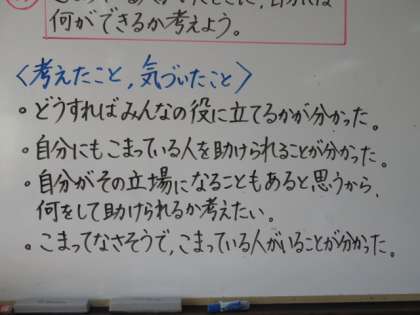 自分には
何ができるか考えよう。
〈考えたこと,気づいたこと〉
・どうすればみんなの役に立てるかが分かった。
・自分にもこまっている人を助けられることが分かった。
・自分がその立場になることもあると思うから、
何をして助けられるか考えたい。
・こまってなさそうで,こまっている人がいることが分かった。